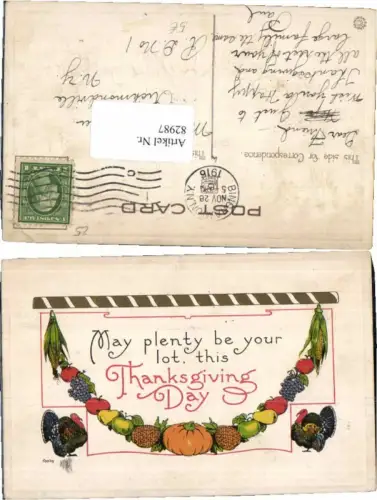 POST CARD
This side for Correspondence.
Dear Friend
Just to
wish you a Happy
Thanksgiving and
all the rest of your
large family the same
Paul
BING
NOV 28
5
1916
N.Y.
Richmondville
N. Y.
R D No 1
Artikel Nr.
82987
May plenty be your
lot, this
Thanksgiving
Day